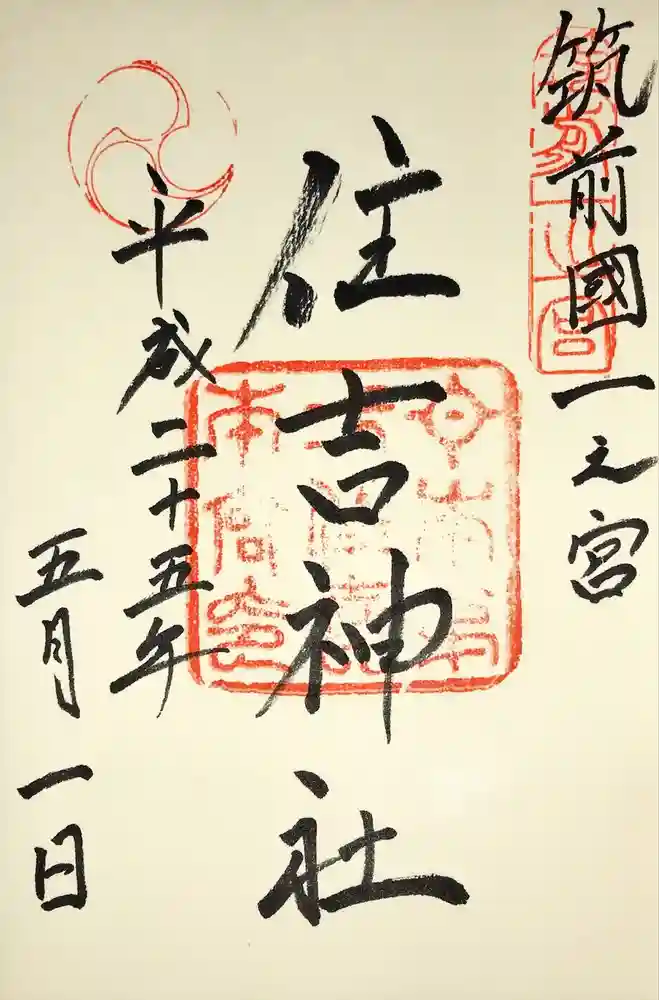 筑前國一之宮
住吉神社
平成二十五年
五月一日